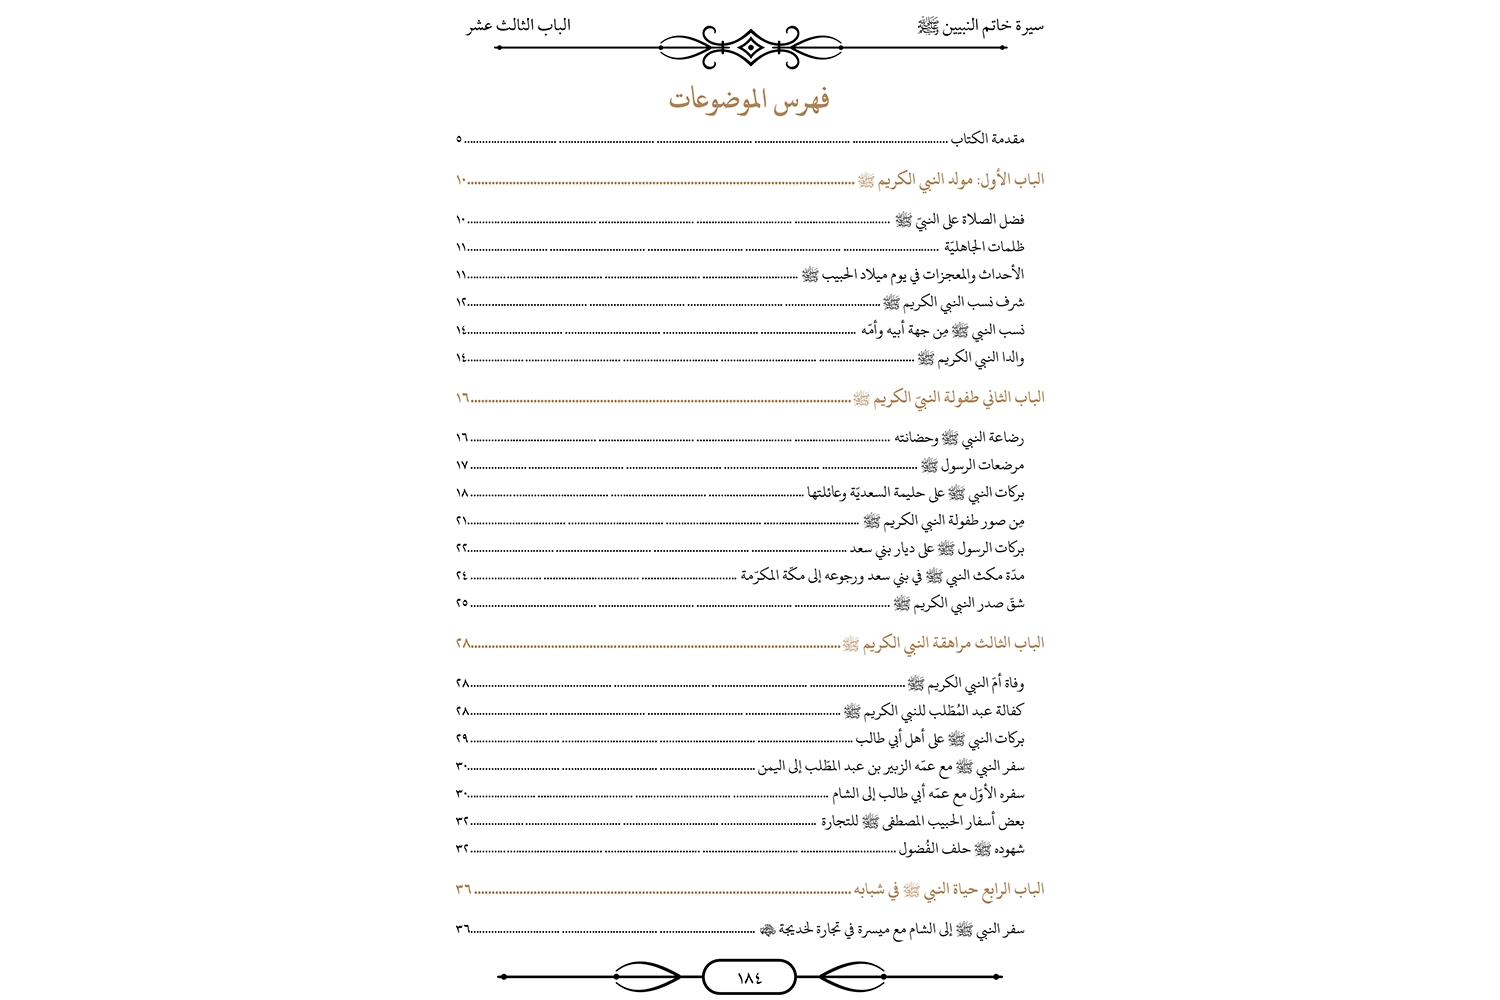 سيرة خاتم النبيين ﷺ
الباب الثالث عشر
فهرس الموضوعات
مقدمة الكتاب ........ ٥
الباب الأول: مولد النبي الكريم ﷺ ........ ١٠
فضل الصلاة على النبيّ ﷺ ........ ١٠
ظلمات الجاهليّة ........ ١١
الأحداث والمعجزات في يوم ميلاد الحبيب ﷺ ........ ١١
شرف نسب النبي الكريم ﷺ ........ ١٢
نسب النبي ﷺ مِن جهة أبيه وأمّه ........ ١٤
والدا النبي الكريم ﷺ ........ ١٤
الباب الثاني طفولة النبيّ الكريم ﷺ ........ ١٦
رضاعة النبي ﷺ وحضانته ........ ١٦
مرضعات الرسول ﷺ ........ ١٧
بركات النبي ﷺ على حليمة السعديّة وعائلتها ........ ١٨
مِن صور طفولة النبي الكريم ﷺ ........ ٢١
بركات الرسول ﷺ على ديار بني سعد ........ ٢٢
مدّة مكث النبي ﷺ في بني سعد ورجوعه إلى مكّة المكرّمة ........ ٢٤
شقّ صدر النبي الكريم ﷺ ........ ٢٥
الباب الثالث مراهقة النبي الكريم ﷺ ........ ٢٨
وفاة أمّ النبي الكريم ﷺ ........ ٢٨
كفالة عبد المُطّلب للنبي الكريم ﷺ ........ ٢٨
بركات النبي ﷺ على أهل أبي طالب ........ ٢٩
سفر النبي ﷺ مع عمّه الزبير بن عبد المطّلب إلى اليمن ........ ٣٠
سفره الأوّل مع عمّه أبي طالب إلى الشام ........ ٣٠
بعض أسفار الحبيب المصطفى ﷺ للتجارة ........ ٣٢
شهوده ﷺ حلف الفُضول ........ ٣٢
الباب الرابع حياة النبي ﷺ في شبابه ........ ٣٦
سفر النبي ﷺ إلى الشام مع ميسرة في تجارة لخديجة ........ ٣٦
١٨٤